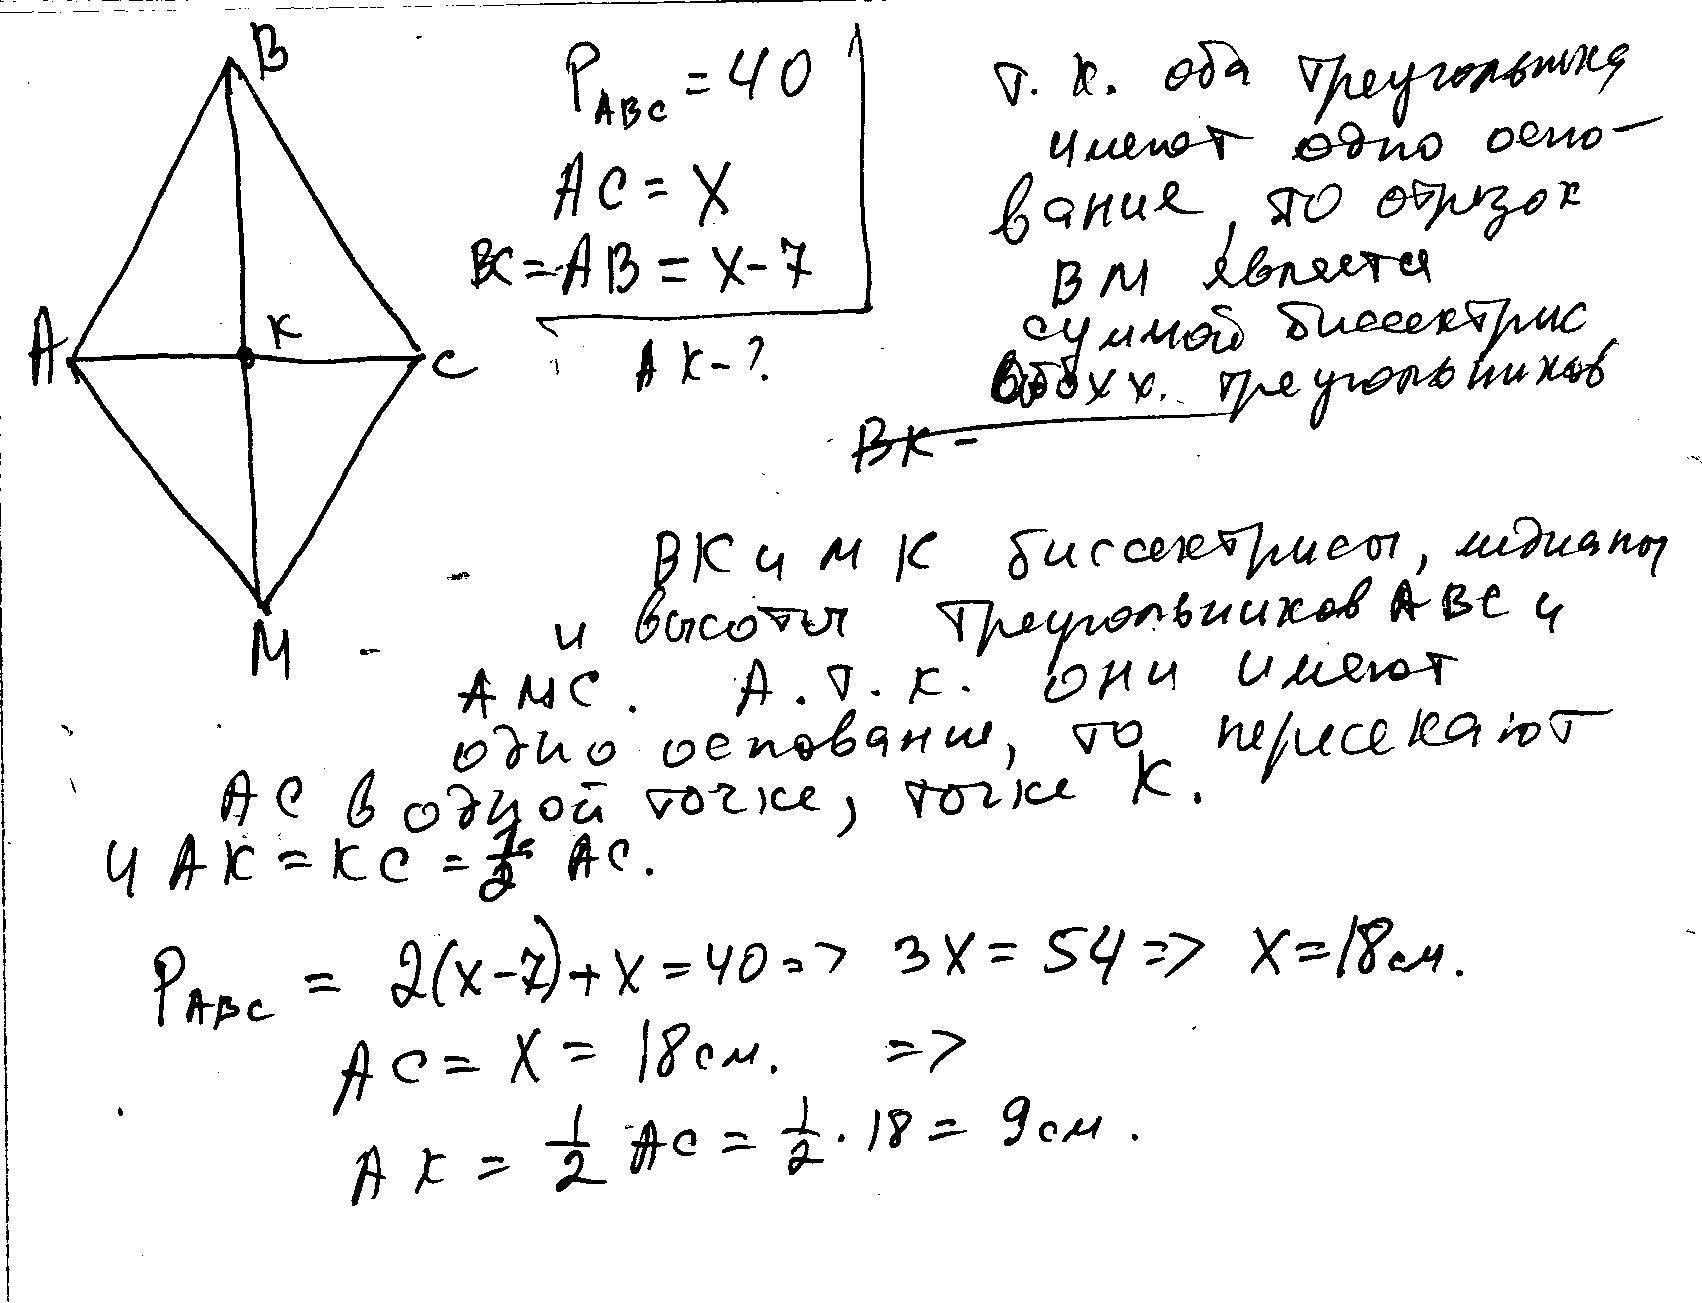 B
A
K
C
M
P_ABC = 40
AC = X
BC = AB = X - 7
AK - ?
т. к. оба треугольника
имеют одно осно-
вание, то отрезок
BM является
суммой биссектрис
обоих х. треугольников
BK =
BK и MK биссектрисы, медианы
и высоты треугольников ABC и
AMC. А. т. к. они имеют
одно основание, то пересекают
AC в одной точке, точке K.
и AK = KC = 1/2 AC.
P_ABC = 2(x-7)+x = 40 => 3X = 54 => X = 18 см.
AC = X = 18 см. =>
AK = 1/2 AC = 1/2 · 18 = 9 см.